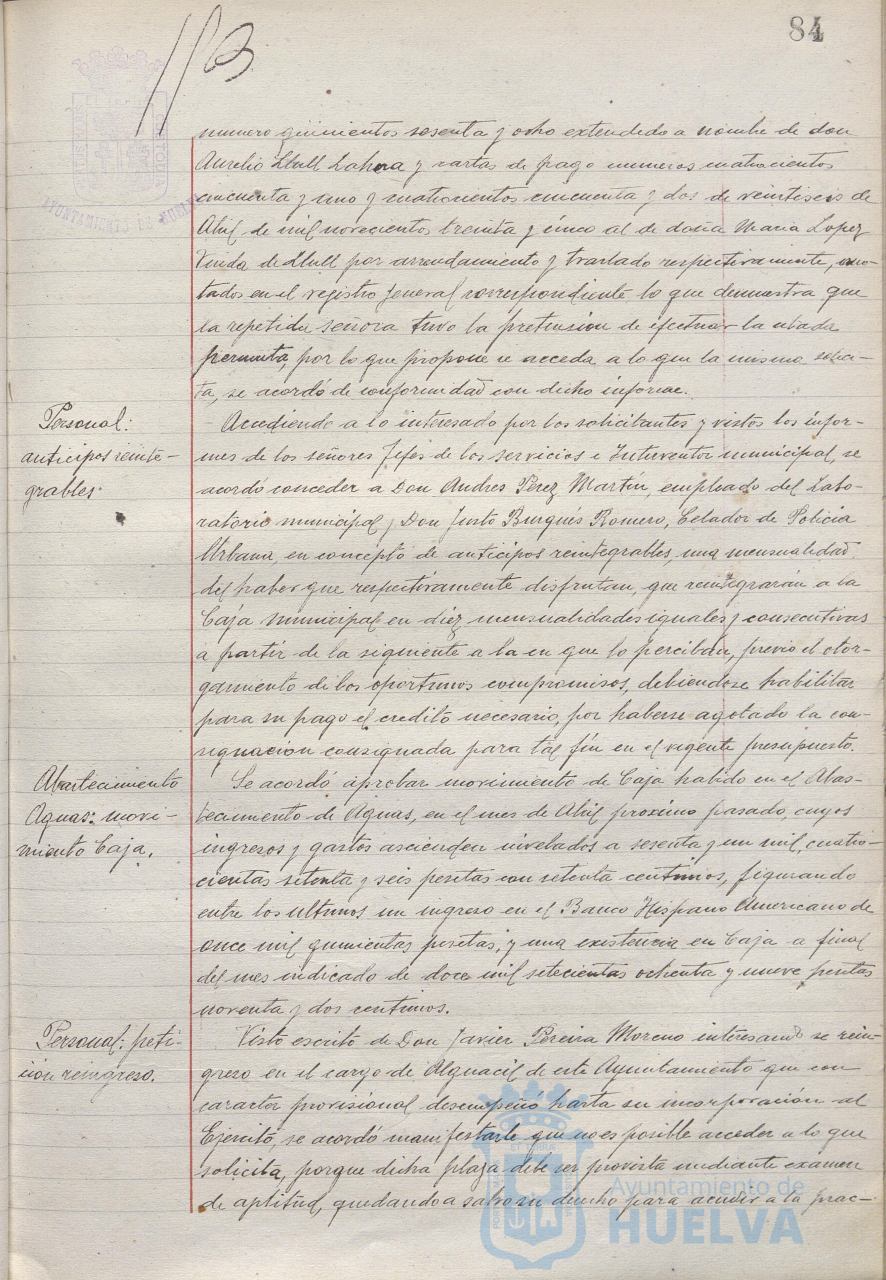 84
numero quinientos sesenta y ocho extendido a nombre de don
Aurelio Llull Lahera y cartas de pago numeros cuatrocientos
cincuenta y uno y cuatrocientos cincuenta y dos de veintiseis de
Abril de mil novecientos treinta y cinco al de doña Maria Lopez
Viuda de Llull por arrendamiento y traslado respectivamente, ano-
tados en el registro general correspondiente lo que demuestra que
la repetida señora tuvo la pretension de efectuar la citada
permuta, por lo que propone se acceda a lo que la misma solici-
ta, se acordó de conformidad con dicho informe.
Personal:
anticipos reinte-
grables.
Accediendo a lo interesado por los solicitantes y vistos los infor-
mes de los señores Jefes de los servicios e Interventor municipal, se
acordó conceder a Don Andres Perez Martín, empleado del Labo-
ratorio municipal y Don Justo Burgués Romero, Celador de Policia
Urbana, en concepto de anticipos reintegrables, una mensualidad
del haber que respectivamente disfrutan, que reintegrarán a la
Caja municipal en diez mensualidades iguales y consecutivas
a partir de la siguiente a la en que lo perciban, previo el otor-
gamiento de los oportunos compromisos, debiendose habilitar
para su pago el credito necesario, por haberse agotado la con-
signacion consignada para tal fin en el vigente presupuesto.
Abastecimiento
Aguas: movi-
miento Caja.
Se acordó aprobar movimiento de Caja habido en el Abas-
tecimiento de Aguas, en el mes de Abril proximo pasado, cuyos
ingresos y gastos ascienden nivelados a sesenta y un mil, cuatro-
cientas setenta y seis pesetas con setenta centimos, figurando
entre los ultimos un ingreso en el Banco Hispano Americano de
once mil quinientas pesetas, y una existencia en Caja a final
del mes indicado de doce mil setecientas ochenta y nueve pesetas
noventa y dos centimos.
Personal: peti-
ción reingreso.
Visto escrito de Don Javier Pereira Moreno interesando se rein-
greso en el cargo de Alguacil de este Ayuntamiento que con
caracter provisional desempeñó hasta su incorporación al
Ejercito, se acordó manifestarle que no es posible acceder a lo que
solicita, porque dicha plaza debe ser provista mediante examen
de aptitud, quedando a salvo su derecho para acudir a la prac-
AYUNTAMIENTO DE HUELVA
Ayuntamiento de
HUELVA